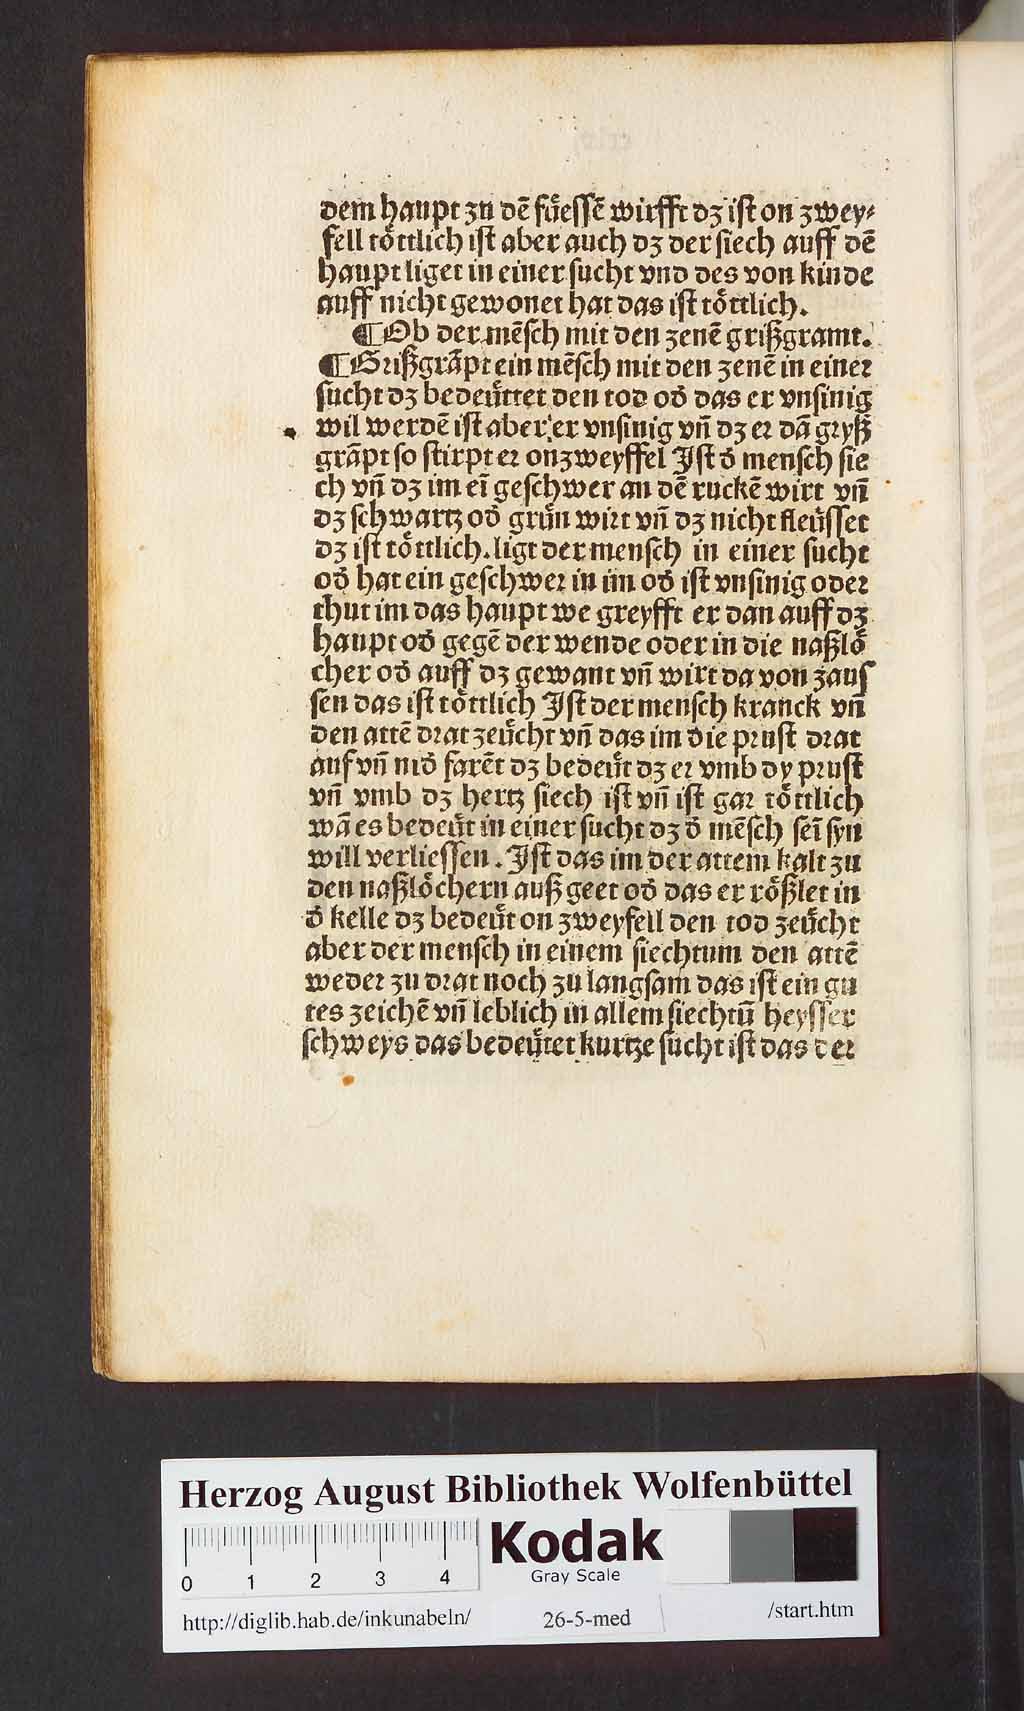 dem haupt zu dē fuͤessē wirfft dz ist on zwey⸗
fell toͤttlich ist aber auch dz der siech auff dē
haupt liget in einer sucht vnd des von kinde
auff nicht gewonet hat das ist toͤttlich.
¶Ob der mēsch mit den zenē grißgramt.
¶Grißgrāpt ein mēsch mit den zenē in einer
sucht dz bedeuͤttet den tod od̓ das er vnsinig
wil werdē ist aber er vnsinig vn̄ dz er dā gryß
grāpt so stirpt er onzweyffel Ist d̓ mensch sie
ch vn̄ dz im eī geschwer an dē ruckē wirt vn̄
dz schwartz od̓ gruͤn wirt vn̄ dz nicht fleuͤsset
dz ist toͤttlich. ligt der mensch in einer sucht
od̓ hat ein geschwer in im od̓ ist vnsinig oder
thut im das haupt we greyfft er dan auff dz
haupt od̓ gegē der wende oder in die naßloͤ
cher od̓ auff dz gewant vn̄ wirt da von zaus
sen das ist toͤttlich Ist der mensch kranck vn̄
den attē drat zeuͤcht vn̄ das im die prust drat
auf vn̄ nid̓ farēt dz bedeuͤt dz er vmb dy prust
vn̄ vmb dz hertz siech ist vn̄ ist gar toͤttlich
wā es bedeuͤt in einer sucht dz d̓ mēsch seī syn
will verliessen. Ist das im der attem kalt zu
den naßloͤchern auß geet od̓ das er roͤßlet in
d̓ kelle dz bedeuͤt on zweyfell den tod zeuͤcht
aber der mensch in einem siechtum den attē
weder zu drat noch zu langsam das ist ein gu
tes zeichē vn̄ leblich in allem siechtū heysser
schweys das bedeuͤtet kurtze sucht ist das der
Herzog August Bibliothek Wolfenbüttel
0 1 2 3 4
Kodak
Gray Scale
http://diglib.hab.de/inkunabeln/ 26-5-med /start.htm